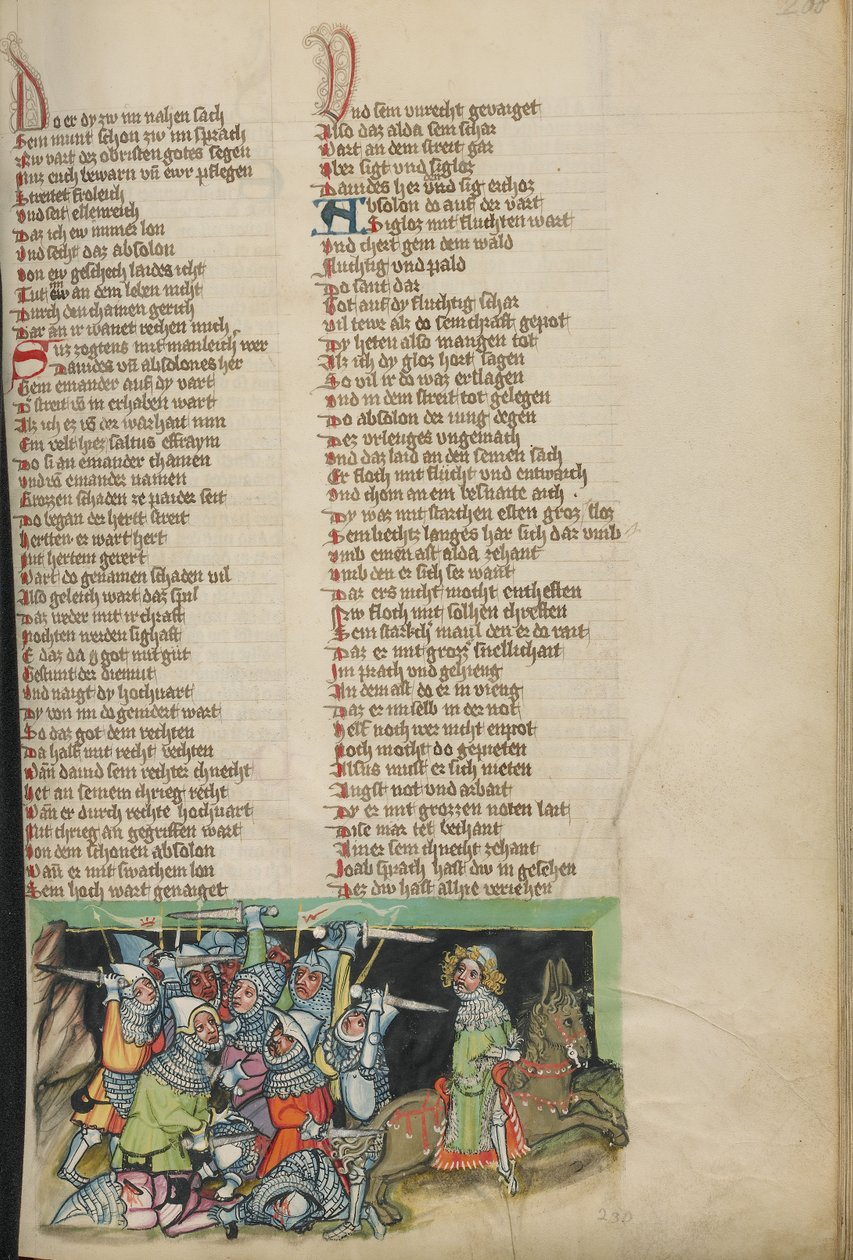 Do er dy zw im nahen sach
Sein munt schon zw im sprach
Zw vart dez obristen gotes segen
Muz euch bewarn vn ewr pflegen
Streitet froleich
Vnd seit ellenreich
Daz ich ew immer lon
Vnd secht daz absolon
Von ew geschech laides icht
Tut im an dem leben nicht
Durch den chainen gerich
Dar an ir wanet rechen mich
Suz zogtens mit manleich wer
Dauides vn absolones her
Gein einander auf dy vart
Der streit in erhaben wart
Alz ich ez von der warhait nim
Ein velt hiez saltus effraym
Do si an einander chamen
Vnd von einander namen
Grozzen schaden ze paider seit
Do began der hertt streit
Hertten er wart hert
Mit hertem gevert
Wart do genamen schaden vil
Also geleich wart daz spil
Daz weder mit ir chraft
Mochten werden sighaft
E daz da got mit gut
Gestunt der diemut
Vnd naigt dy hochuart
Dy von im do genidert wart
So daz got dem rechten
Da half mit recht vechten
Wann dauid sein rechter chnecht
Het an seinem chrieg recht
Wann er durch rechte hochuart
Mit chrieg an gegriffen wart
Von dem schonen absolon
Wann er mit swachem lon
Sein hoch wart genaiget
Vnd sein vnrecht gevaiget
Also daz alda sein schar
Wart an dem streit gar
Vber sigt vnd sigloz
Dauides her den sig erchoz
Absolon do auf der vart
Sigloz mit fluchten wart
Vnd chert gein dem wald
Fluchtig vnd pald
Do sant dar
Got auf dy fluchtig schar
Vil tewr alz do sein chraft gepot
Dy heten also manigen tot
Alz ich dy gloz hort sagen
So vil ir do waz erslagen
Vnd in dem streit tot gelegen
Do absolon der iung degen
Dez vrleuges vngemach
Vnd daz laid an den seinen sach
Er floch mit flucht vnd entwaich
Vnd chom an ein besnaite aich
Dy waz mit starchen esten groz
Sein liechtz langes har sich dar vmb
Vmb einen ast alda zehant
Vmb den er sich ser want
Daz ers nicht mocht enthesten
Nw floch mit sollhen chreften
Sein starkch maul den er do rait
Daz er mit grozz snellichait
Im prach vnd gehieng
An dem ast do er in vieng
Daz er im selb in der not
Helf noch wer nicht enpot
Noch mocht do gepieten
Alsus must er sich nieten
Angst not vnd arbait
Dy er mit grozzen noten lait
Dise mar tet bechant
Ainer sein chnecht zehant
Ioab sprach hast dw in gesehen
Dez dw hast allhie veriehen
230